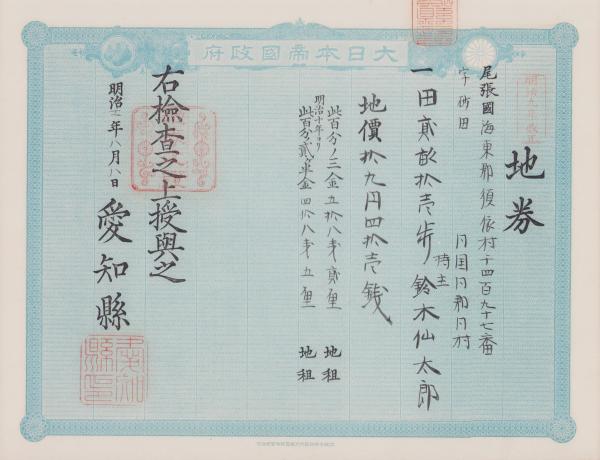 大日本帝國政府
明治九年改正
地券
尾張國海東郡須依村千四百九十七番
字砂田
同国同郡同村
持主
一田貳畝拾壱歩 鈴木仙太郎
地價拾九円四拾壱銭
此百分ノ三金五拾八銭貳厘 地租
明治十年ヨリ
此百分ノ貳ヶ半金四拾八銭五厘 地租
右檢查之上授與之
明治十二年八月八日
愛知縣
愛知縣印